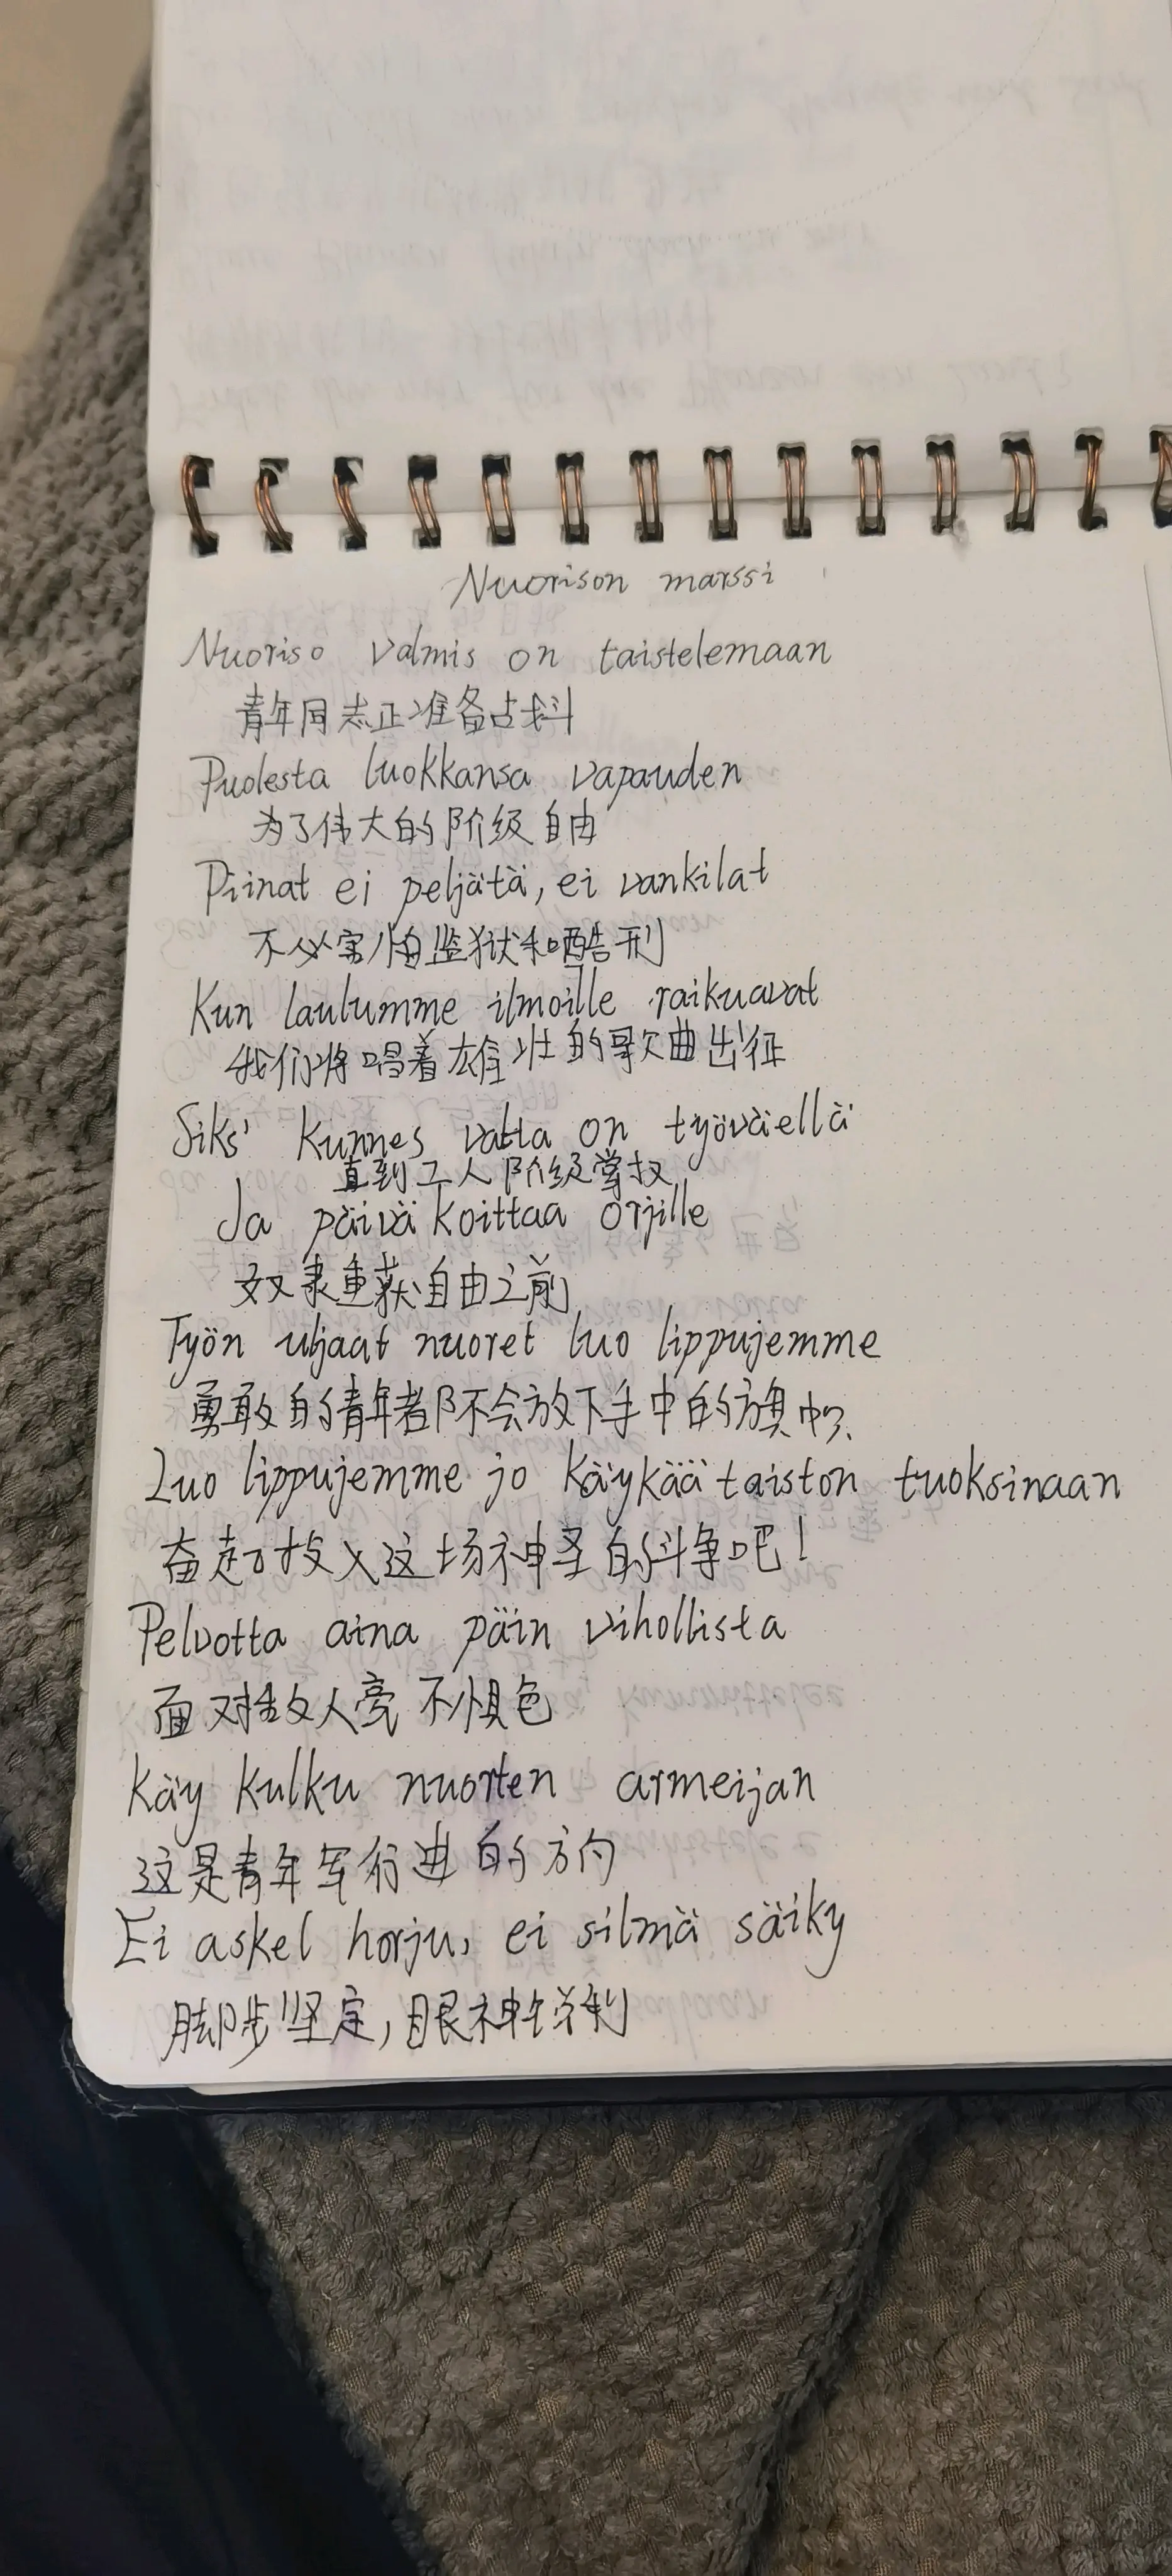 Nuorison marssi
Nuoriso valmis on taistelemaan
青年同志正准备战斗
Puolesta luokkansa vapauden
为了伟大的阶级自由
Piinat ei peljätä, ei vankilat
不必害怕监狱和酷刑
Kun laulumme ilmoille raikuavat
我们将唱着雄壮的歌曲出征
Siks' kunnes valta on työväellä
直到工人阶级掌权
Ja päivä koittaa orjille
奴隶重获自由之前
Työn uljaat nuoret luo lippujemme
勇敢的青年者们不会放下手中的旗帜
Luo lippujemme jo käykää taiston tuoksinaan
奋起投入这场神圣的斗争吧！
Pelvotta aina päin vihollista
面对敌人毫不惧色
Käy kulku nuorten armeijan
这是青年军行进的方向
Ei askel horju, ei silmä säiky
脚步坚定,眼神锐利